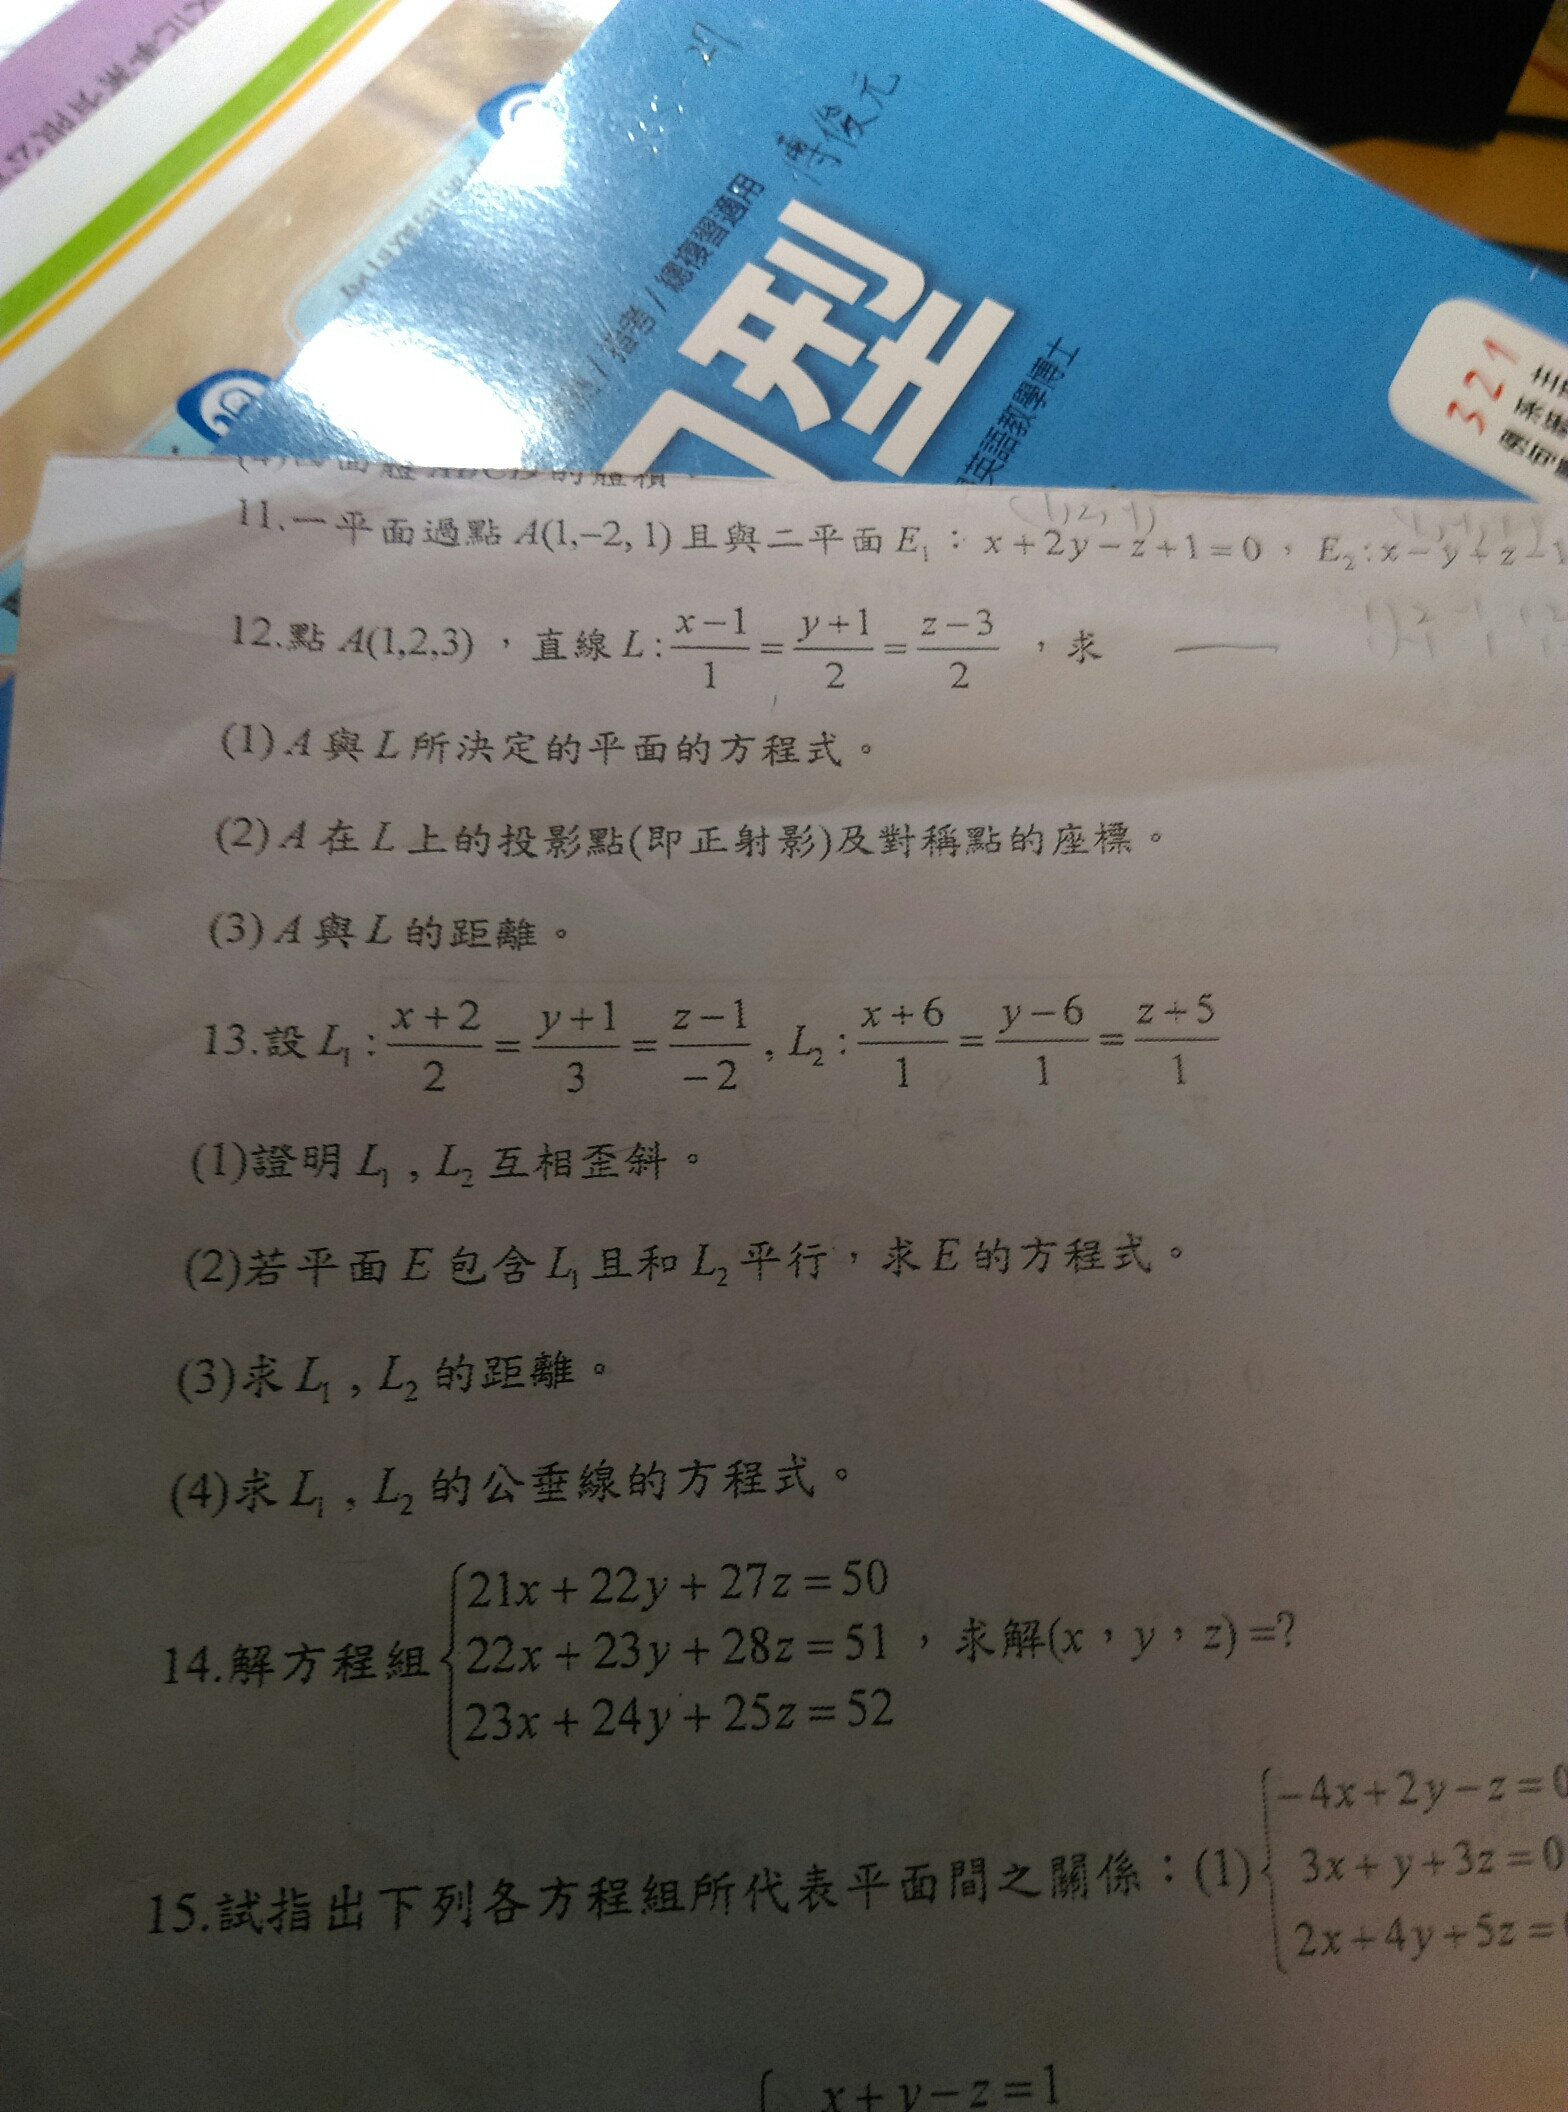 傅俊元
指考/總複習適用
型
英語教學博士
321
(1,2,-1)
11.一平面過點 A(1,−2, 1) 且與二平面 E₁：x+2y−z+1=0，E₂:x−y+z−1
12.點 A(1,2,3)，直線 L: (x−1)/1 = (y+1)/2 = (z−3)/2，求
(1) A 與 L 所決定的平面的方程式。
(2) A 在 L 上的投影點(即正射影)及對稱點的座標。
(3) A 與 L 的距離。
13.設 L₁: (x+2)/2 = (y+1)/3 = (z−1)/−2, L₂: (x+6)/1 = (y−6)/1 = (z+5)/1
(1)證明 L₁, L₂ 互相歪斜。
(2)若平面 E 包含 L₁ 且和 L₂ 平行，求 E 的方程式。
(3)求 L₁, L₂ 的距離。
(4)求 L₁, L₂ 的公垂線的方程式。
21x+22y+27z=50
14.解方程組 22x+23y+28z=51，求解(x，y，z)=?
23x+24y+25z=52
−4x+2y−z=0
15.試指出下列各方程組所代表平面間之關係：(1) 3x+y+3z=0
2x+4y+5z=
x+y−z=1